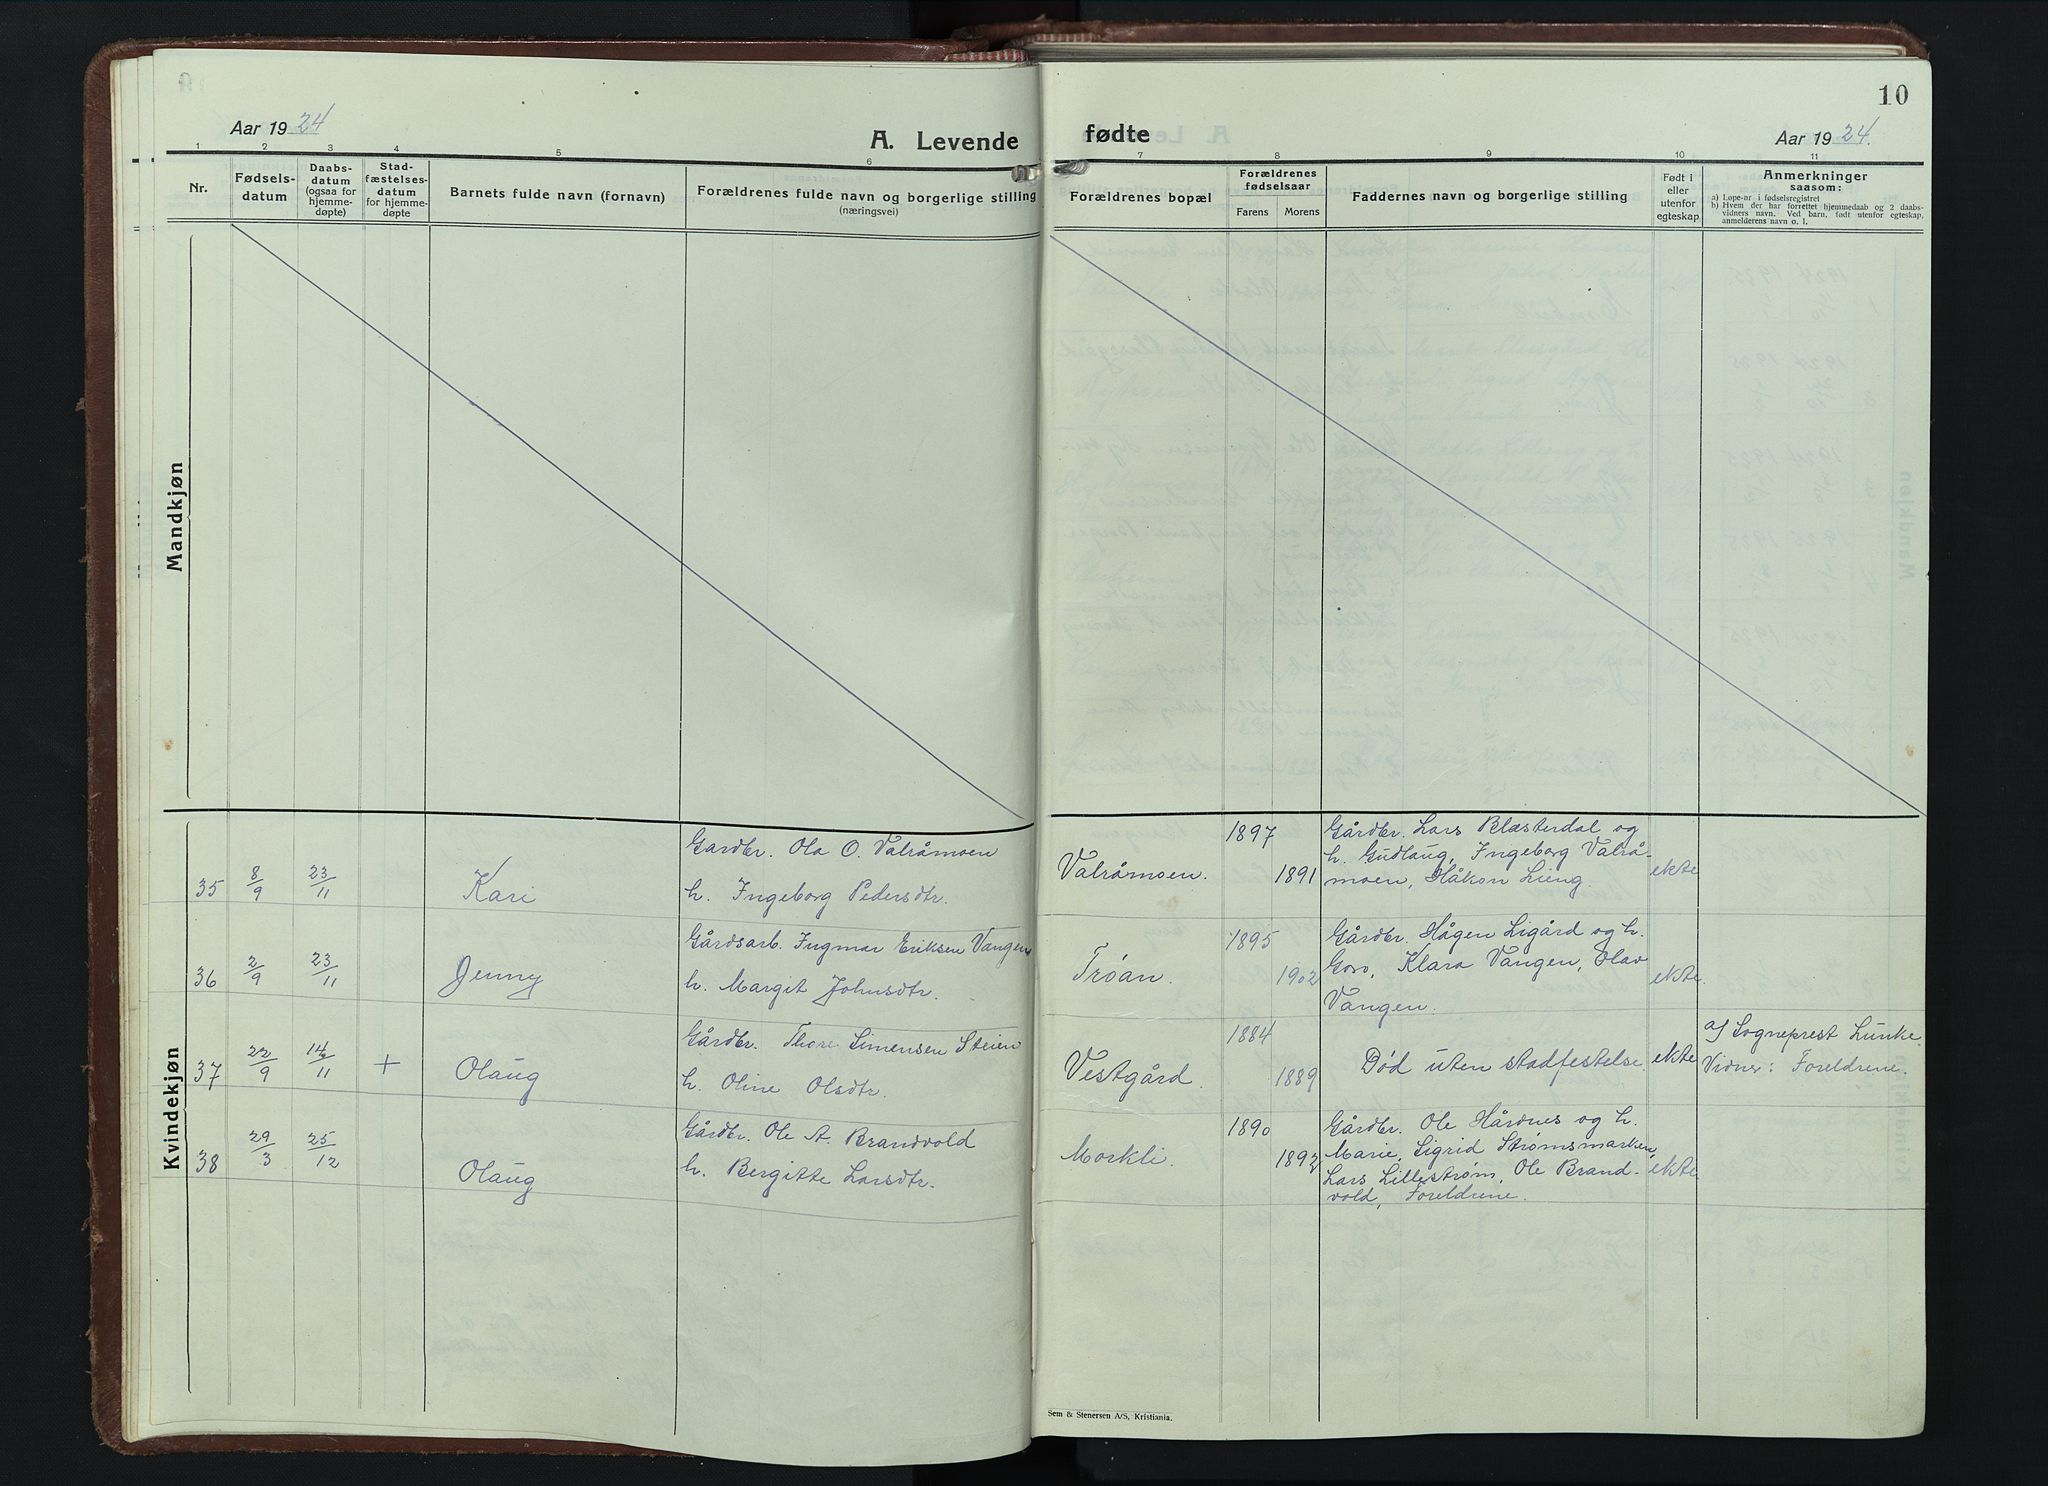 10
Aar 19 24
A. Levende
fødte
Aar 19 24.
1 2 3 4 5 6 7 8 9 10 11
Nr.
Fødsels-
datum
Daabs-
datum
(ogsaa for
hjemme-
døpte)
Stad-
fæstelses-
datum
for hjemme-
døpte
Barnets fulde navn (fornavn)
Forældrenes fulde navn og borgerlige stilling
(næringsvei)
Forældrenes bopæl
Forældrenes
fødselsaar
Farens Morens
Faddernes navn og borgerlige stilling
Født i
eller
utenfor
egteskap
Anmerkninger
saasom:
a) Løpe-nr i fødselsregistret
b) Hvem der har forrettet hjemmedaab og 2 daabs-
vidners navn. Ved barn, født utenfor egteskap,
anmelderens navn o. l.
Mandkjøn
Kvindekjøn
35 8/9 23/11 Kari
Gardbr. Ola O. Valråmoen
h. Ingeborg Pedersdtr.
Valråmoen. 1897 1891
Gårdbr. Lars Blæsterdal og
h. Gudlaug, Ingeborg Valrå-
moen, Håkon Lieng.
ekte
36 2/9 23/11 Jenny
Gårdsarb. Ingmar Eriksen Vangen
h. Margit Johnsdtr.
Trøan. 1895 1902
Gårdbr. Hågen Ligård og h.
Goro, Klara Vangen, Olav
Vangen.
ekte.
37 22/9 14/11 + Olaug
Gårdbr. Thore Simensen Steien
h. Oline Olsdtr.
Vestgård. 1884 1889
Død uten stadfestelse.
ekte
a) Sogneprest Lunke.
Vidner: Foreldrene.
38 29/3 25/12 Olaug
Gårdbr. Ole A. Brandvold
h. Bergitte Larsdtr.
Morkli. 1890 1892
Gårdbr. Ole Hårdnes og h.
Marie, Sigrid Strømsmarken,
Lars Lillestrøm, Ole Brand-
vold, Foreldrene.
ekte
Sem & Stenersen A/S, Kristiania.